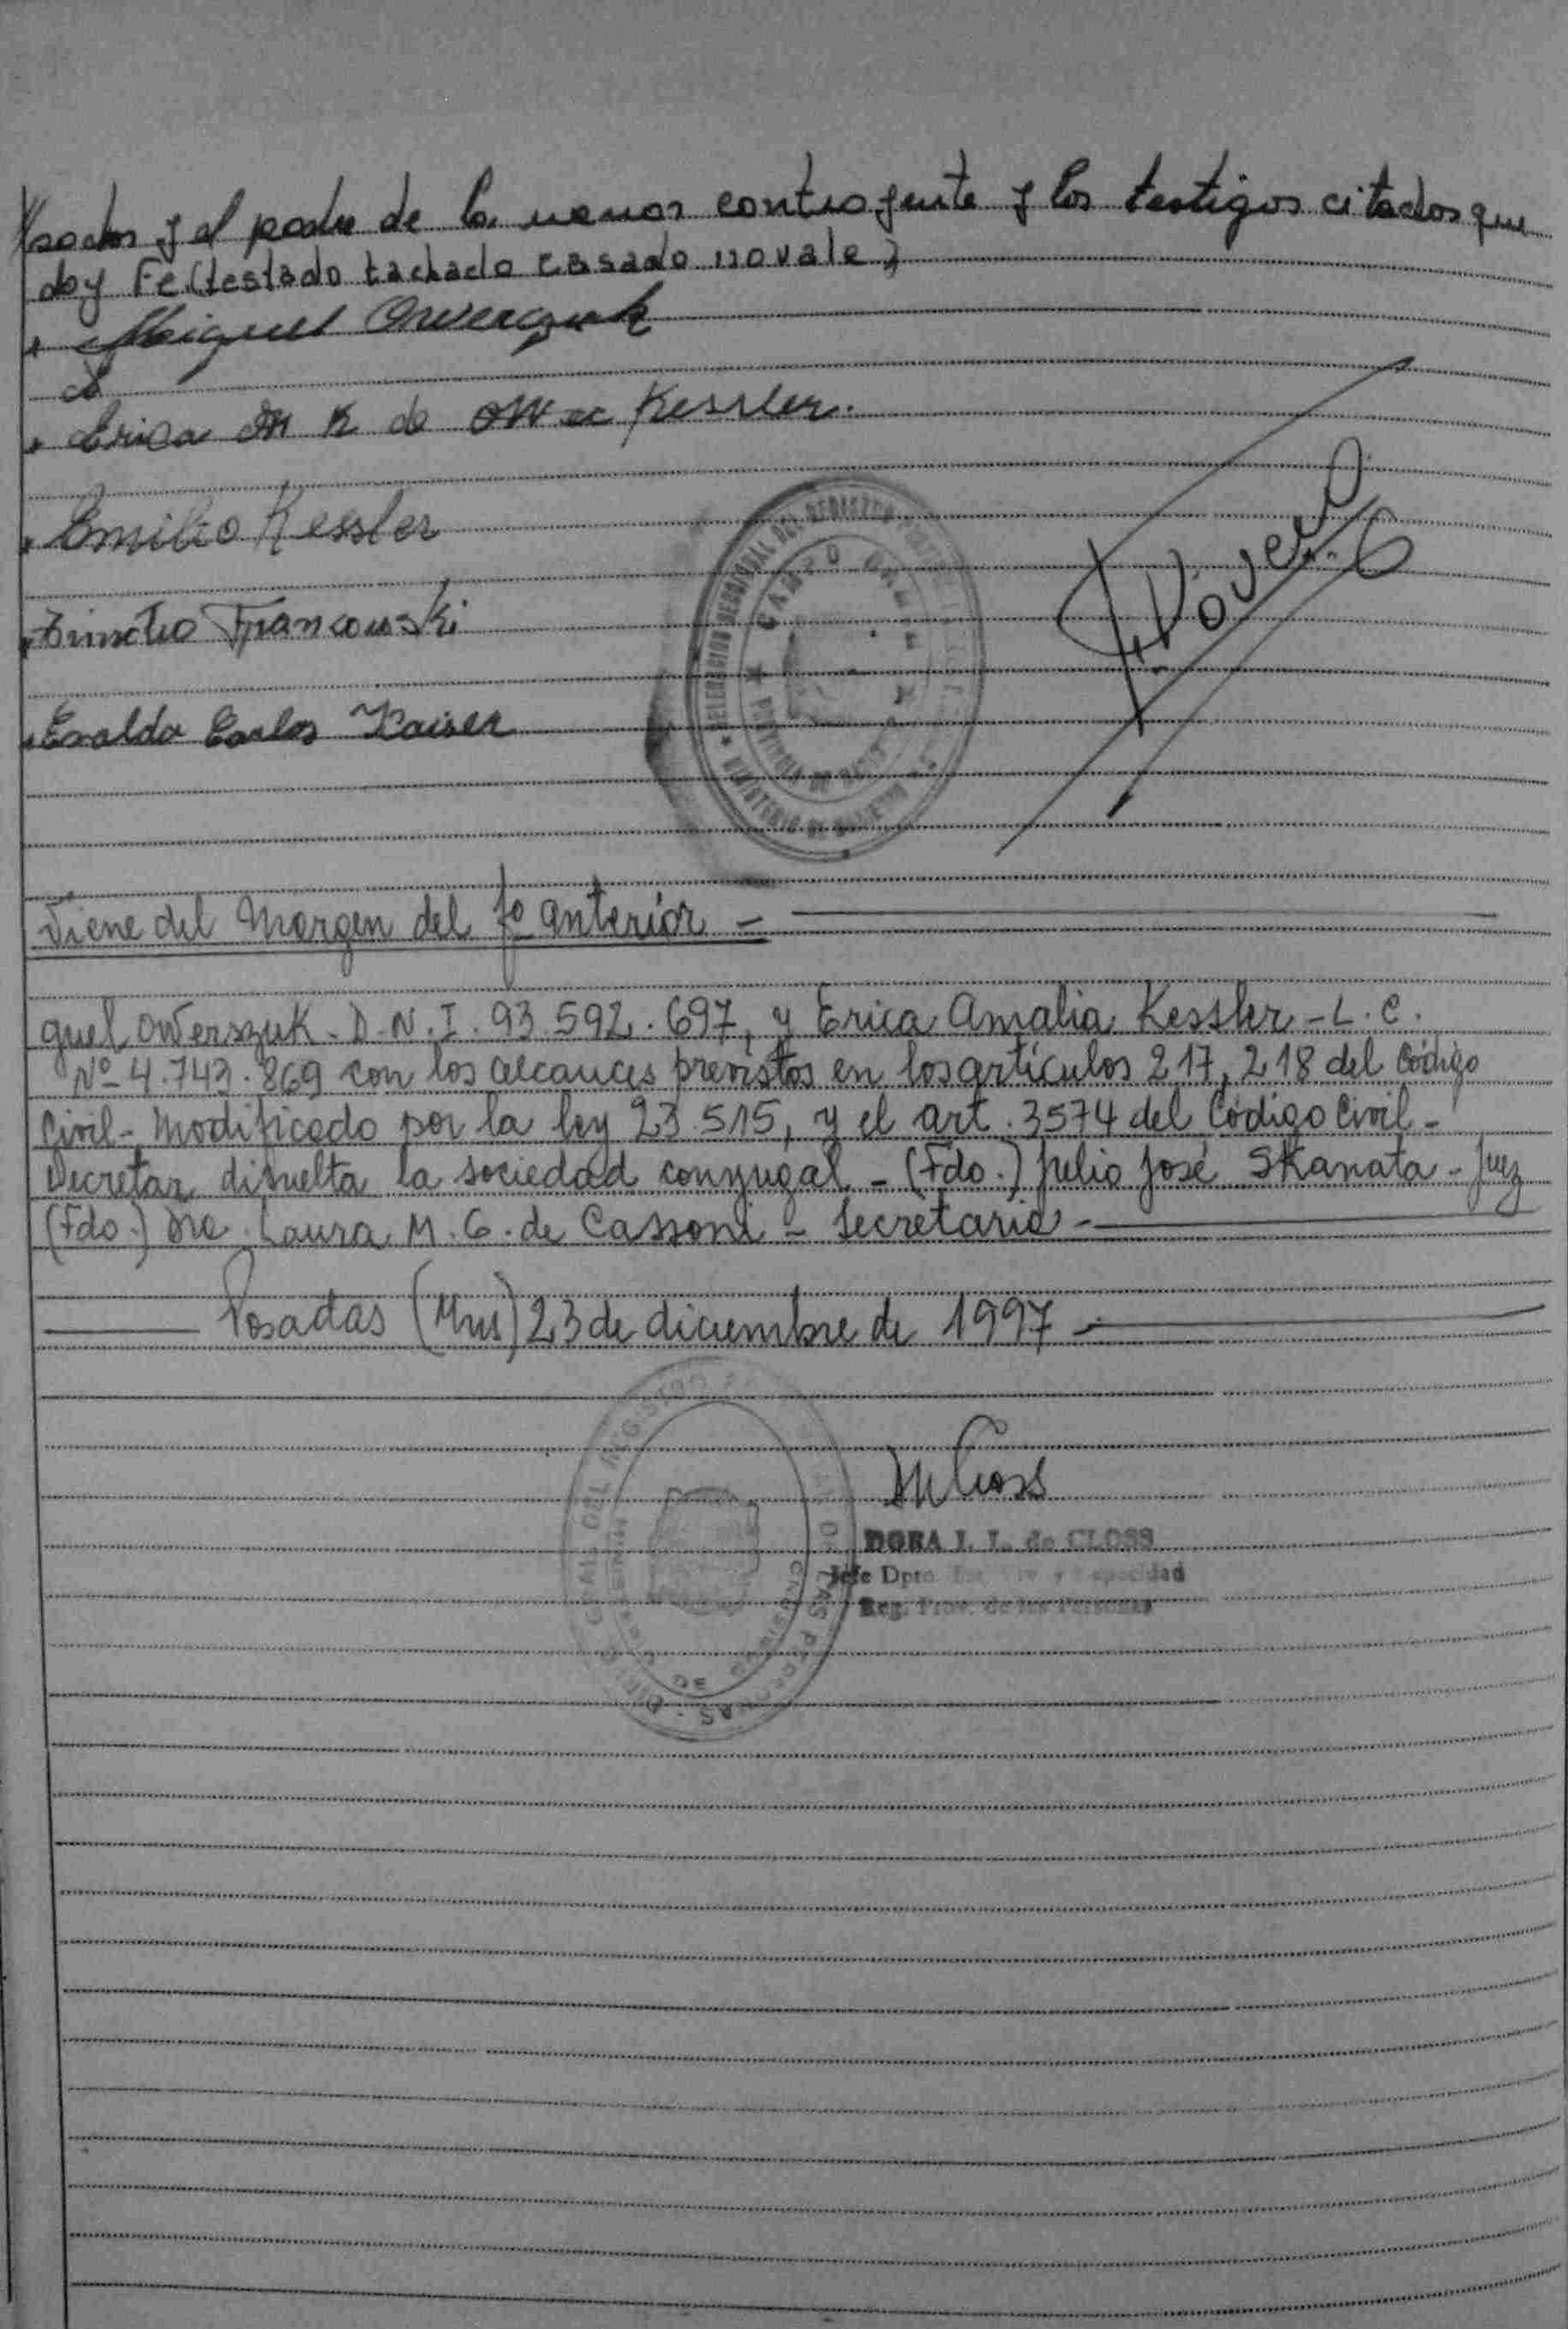 y el padre de la menor contrayente y los testigos citados que
doy Fe (testado tachado casado no vale)
Miguel Owerczuk
Erica A K de Kessler.
Emilio Kessler
Francowski
Eraldo Carlos Kaiser
DELEGACION DEL REGISTRO
PROVINCIA DE
MINISTERIO DE GOBIERNO
Viene del Margen del fº anterior -
guel Owerszuk - D.N.I. 93.592.697, y Erica Amalia Kessler - L.C.
Nº 4.743.869 con los alcances previstos en los artículos 217, 218 del Código
Civil - Modificado por la ley 23.515, y el art. 3574 del Código Civil -
Decretar disuelta la sociedad conyugal - (Fdo.) Julio José Skanata - Juez
(Fdo.) Dra. Laura M. G. de Cassoni - Secretaria -
Posadas (Mns) 23 de diciembre de 1997 -
DORA I. L. de CLOSS
Jefe Dpto. Est. Civ. y Capacidad
Reg. Prov. de las Personas